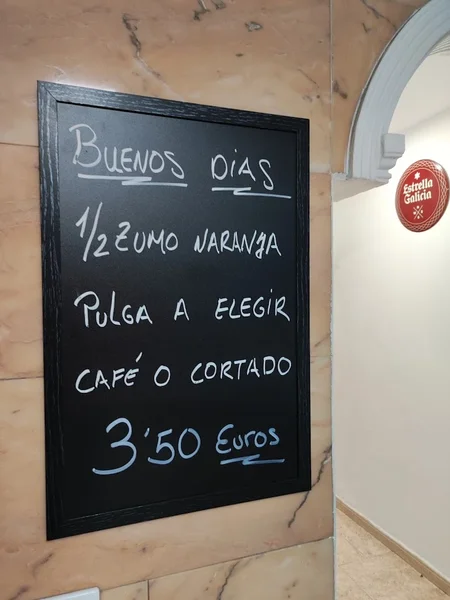 BUENOS DIAS
1/2 ZUMO NARANJA
PULGA A ELEGIR
CAFÉ O CORTADO
3'50 Euros
Estrella
Galicia